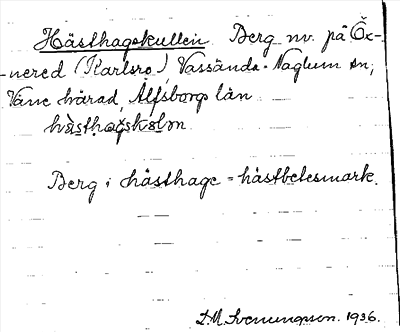 Hästhagskullen Berg nv. på Öx-
-nered (Karlsro), Vassända-Naglum sn,
Väne härad, Älfsborgs län
hàsthagskòlən
Berg i hästhage = hästbetesmark.
D.M. Svenungsson. 1936.